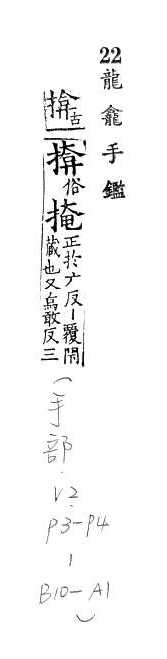 22
龍龕手鑑
揜古
揜俗掩正於广反丨覆閇
藏也又烏敢反三
(手部.V2.P3-P4-B10-A1)